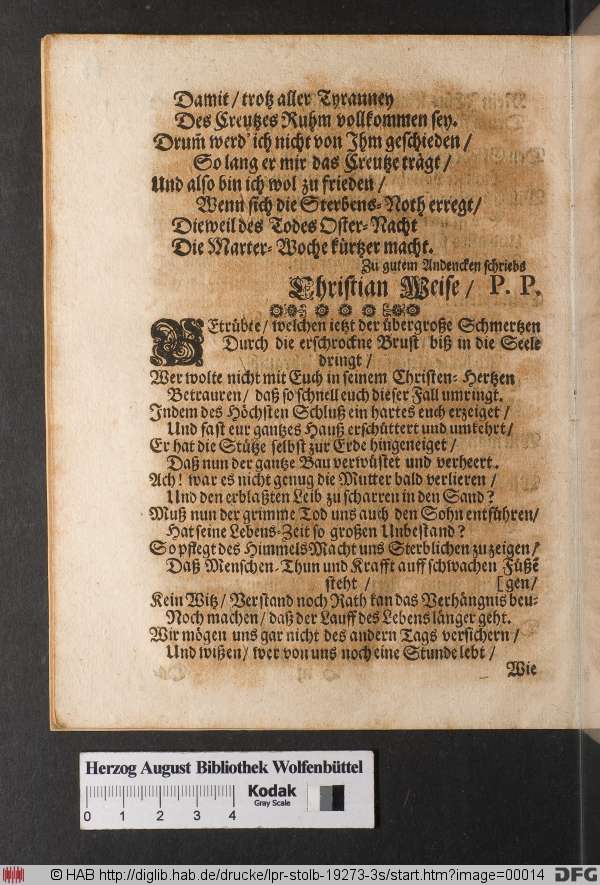 Damit / trotz aller Tyranney
Des Creutzes Ruhm vollkommen sey.
Drum̃ werd' ich nicht von Ihm geschieden /
So lang er mir das Creutze trägt /
Und also bin ich wol zu frieden /
Wenn sich die Sterbens-Noth erregt /
Dieweil des Todes Oster-Nacht
Die Marter-Woche kürtzer macht.
Zu gutem Andencken schriebs
Christian Weise / P. P.
BEtrübte / welchen ietzt der übergroße Schmertzen
Durch die erschrockne Brust biß in die Seele
dringt /
Wer wolte nicht mit Euch in seinem Christen-Hertzen
Betrauren / daß so schnell euch dieser Fall umringt.
Indem des Höchsten Schluß ein hartes euch erzeiget /
Und fast eur gantzes Hauß erschüttert und umkehrt /
Er hat die Stütze selbst zur Erde hingeneiget /
Daß nun der gantze Bau verwüstet und verheert.
Ach! war es nicht genug die Mutter bald verlieren /
Und den erblaßten Leib zu scharren in den Sand?
Muß nun der grimme Tod uns auch den Sohn entführen /
Hat seine Lebens-Zeit so großen Unbestand?
So pflegt des Himmels Macht uns Sterblichen zu zeigen /
Daß Menschen-Thun und Krafft auff schwachen Füßẽ
steht / [gen /
Kein Witz / Verstand noch Rath kan das Verhängnis beu-
Noch machen / daß der Lauff des Lebens länger geht.
Wir mögen uns gar nicht des andern Tags versichern /
Und wißen / wer von uns noch eine Stunde lebt /
Wie
Herzog August Bibliothek Wolfenbüttel
0 1 2 3 4
Kodak
Gray Scale
© HAB http://diglib.hab.de/drucke/lpr-stolb-19273-3s/start.htm?image=00014
DFG